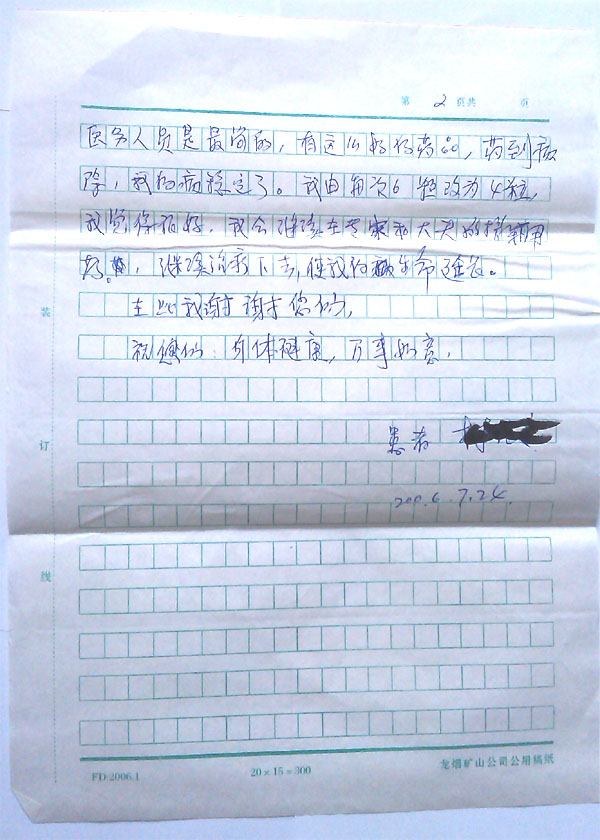 第 2 页共 页
医务人员是最高的，有这么好的药品，药到病
除，我的病稳定了。我由每次6粒改为4粒，
我觉得很好。我会继续在专家和大夫的指导用
药，继续治疗下去，使我的生命延长。
在此我谢谢您们，
祝您们：身体健康，万事如意。
患者
2006.7.24.
装
订
线
FD:2006.1
20×15=300
龙烟矿山公司公用稿纸